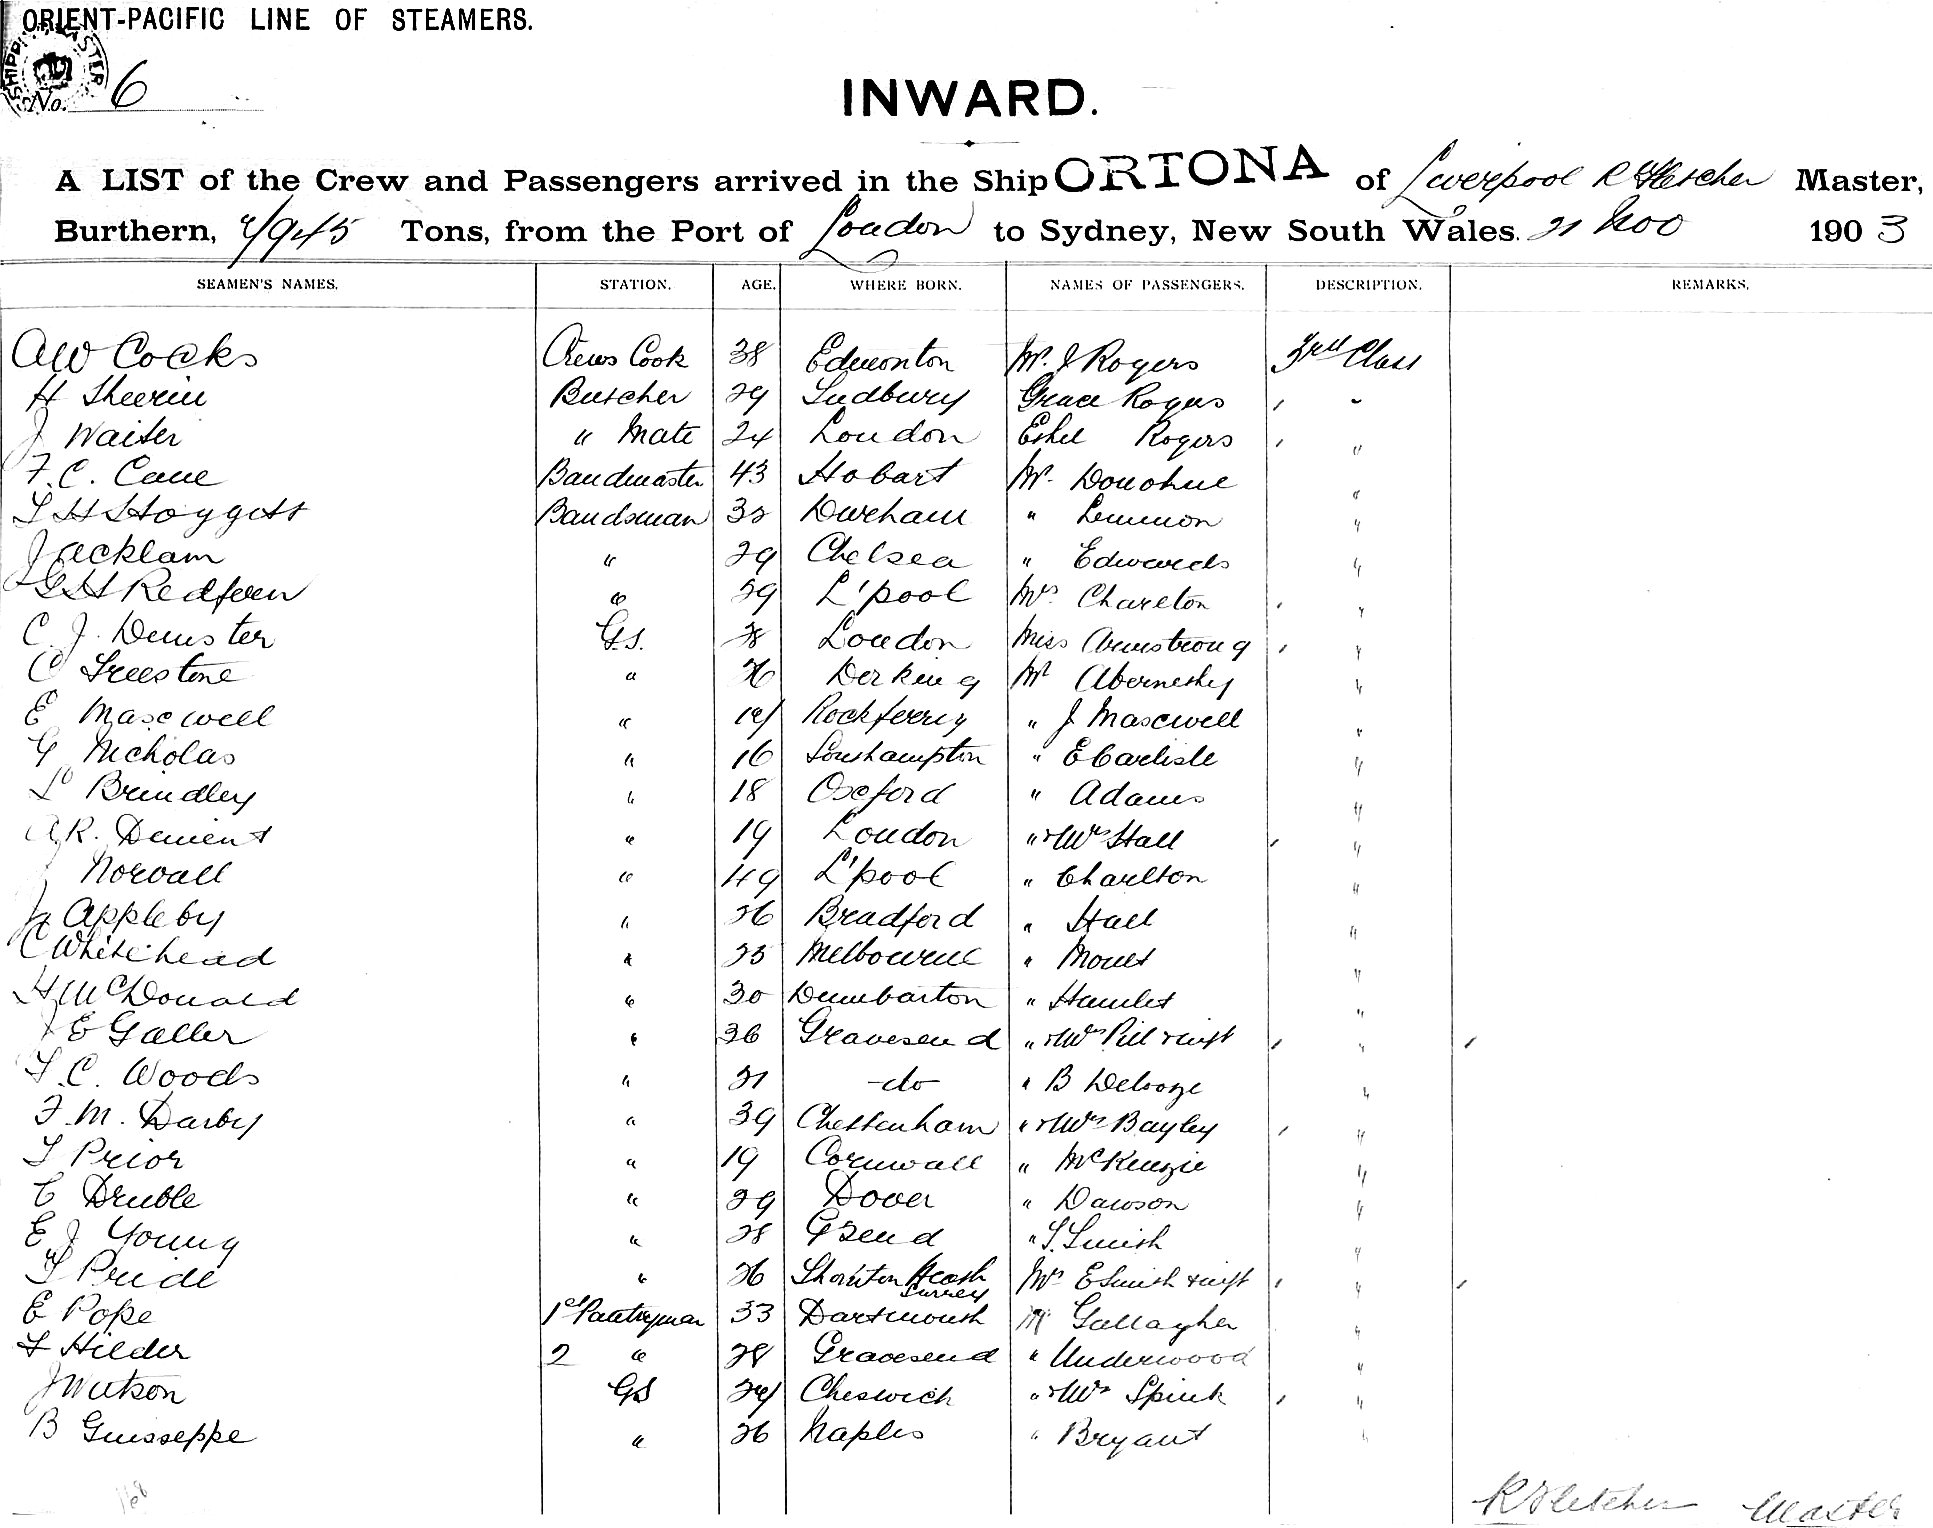 ORIENT-PACIFIC LINE OF STEAMERS.
No. 6
INWARD.
A LIST of the Crew and Passengers arrived in the Ship ORTONA of Liverpool R Fletcher Master,
Burthern, 4/945 Tons, from the Port of London to Sydney, New South Wales. 21 Nov 1903
SEAMEN'S NAMES. STATION. AGE. WHERE BORN. NAMES OF PASSENGERS. DESCRIPTION. REMARKS.
AW Cocks Crews Cook 38 Edmonton Mr. J Rogers 3rd Class
H Sheerin Butcher 29 Sudbury Grace Rogers , "
J Waiter " Mate 24 London Ethel Rogers , "
F. C. Cane Bandmaster 43 Hobart Mr. Donohue "
T H Hoggett Bandsman 32 Durham " Lemmon "
J Acklam " 29 Chelsea " Edwards "
G H Redfern " 29 L'pool Mrs. Charlton , "
C J. Demster G.S. 28 London Miss Armstrong , "
C Freestone " 26 Derking Mr Abernethy "
E Maxwell " 19 Rockferry " J Maxwell "
G Nicholas " 16 Southampton " E Carlisle "
L Brindley " 18 Oxford " Adams "
A R. Dement " 19 London " & Mrs Hall , "
Norvall " 49 L'pool " Charlton "
J Appleby " 26 Bradford " Hall "
C Whitehead " 25 Melbourne " "
H McDonald " 30 Dumbarton " Hamlet "
J E Galler " 36 Gravesend " & Mrs Pill & inft , "
T. C. Woods " 21 -do- " B "
F. M. Darby " 39 Cheltenham " & Mrs Bayley , "
T Prior " 19 Cornwall " McKenzie "
C Druble " 29 Dover " Dawson "
E J Young " 28 G'Send " S. Smith "
T Pride " 26 Thornton Heath Surrey Mrs E Smith & inft , "
E Pope 1st Pantryman 33 Dartmouth Mr Gallagher "
F Hilder 2 " 28 Gravesend " Underwood "
J Watson GS 24 Cheswich " & Mrs Spink , "
B Guisseppe " 26 Naples " Bryant "
168
R Fletcher Master